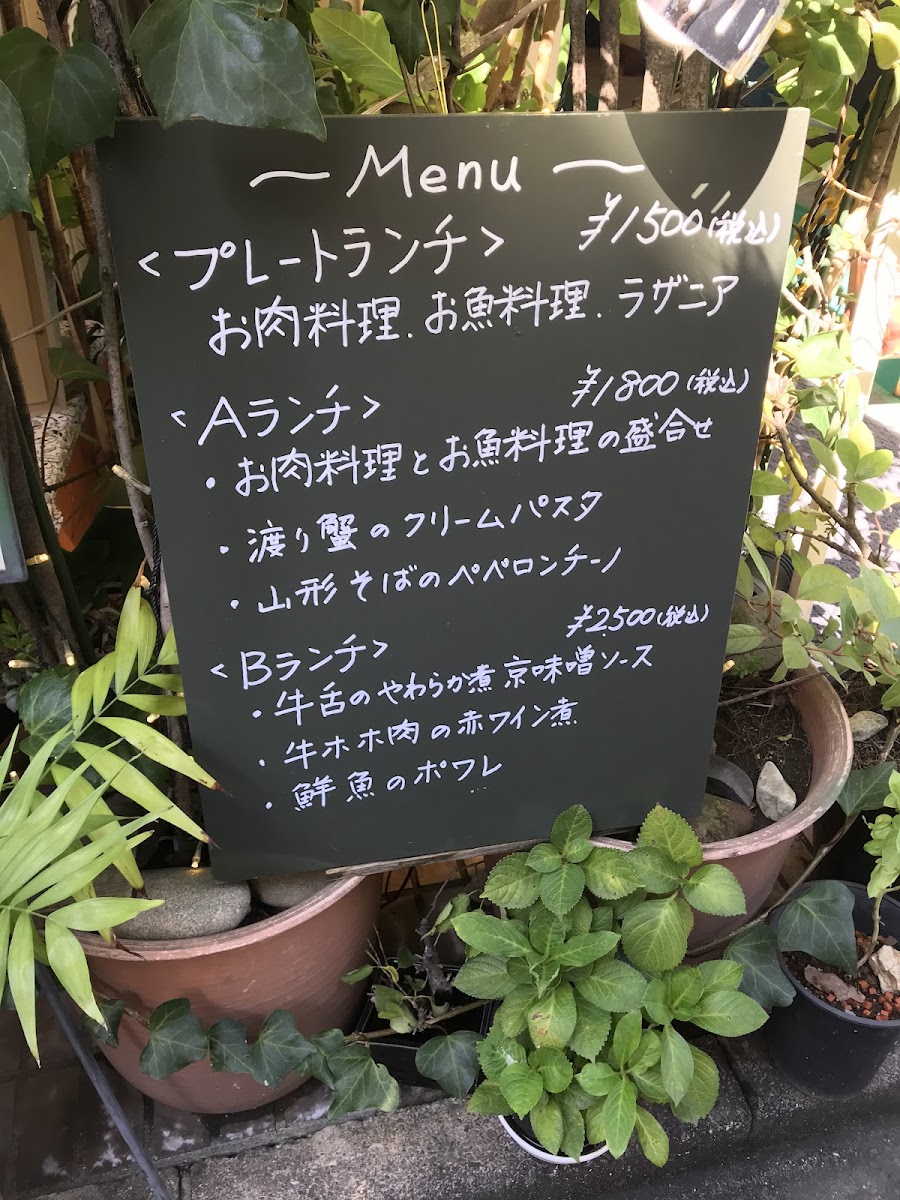 〜 Menu 〜
<プレートランチ> ¥1500(税込)
お肉料理.お魚料理.ラザニア
<Aランチ> ¥1800(税込)
・お肉料理とお魚料理の盛合せ
・渡り蟹のクリームパスタ
・山形そばのペペロンチーノ
<Bランチ> ¥2500(税込)
・牛舌のやわらか煮 京味噌ソース
・牛ホホ肉の赤ワイン煮
・鮮魚のポワレ